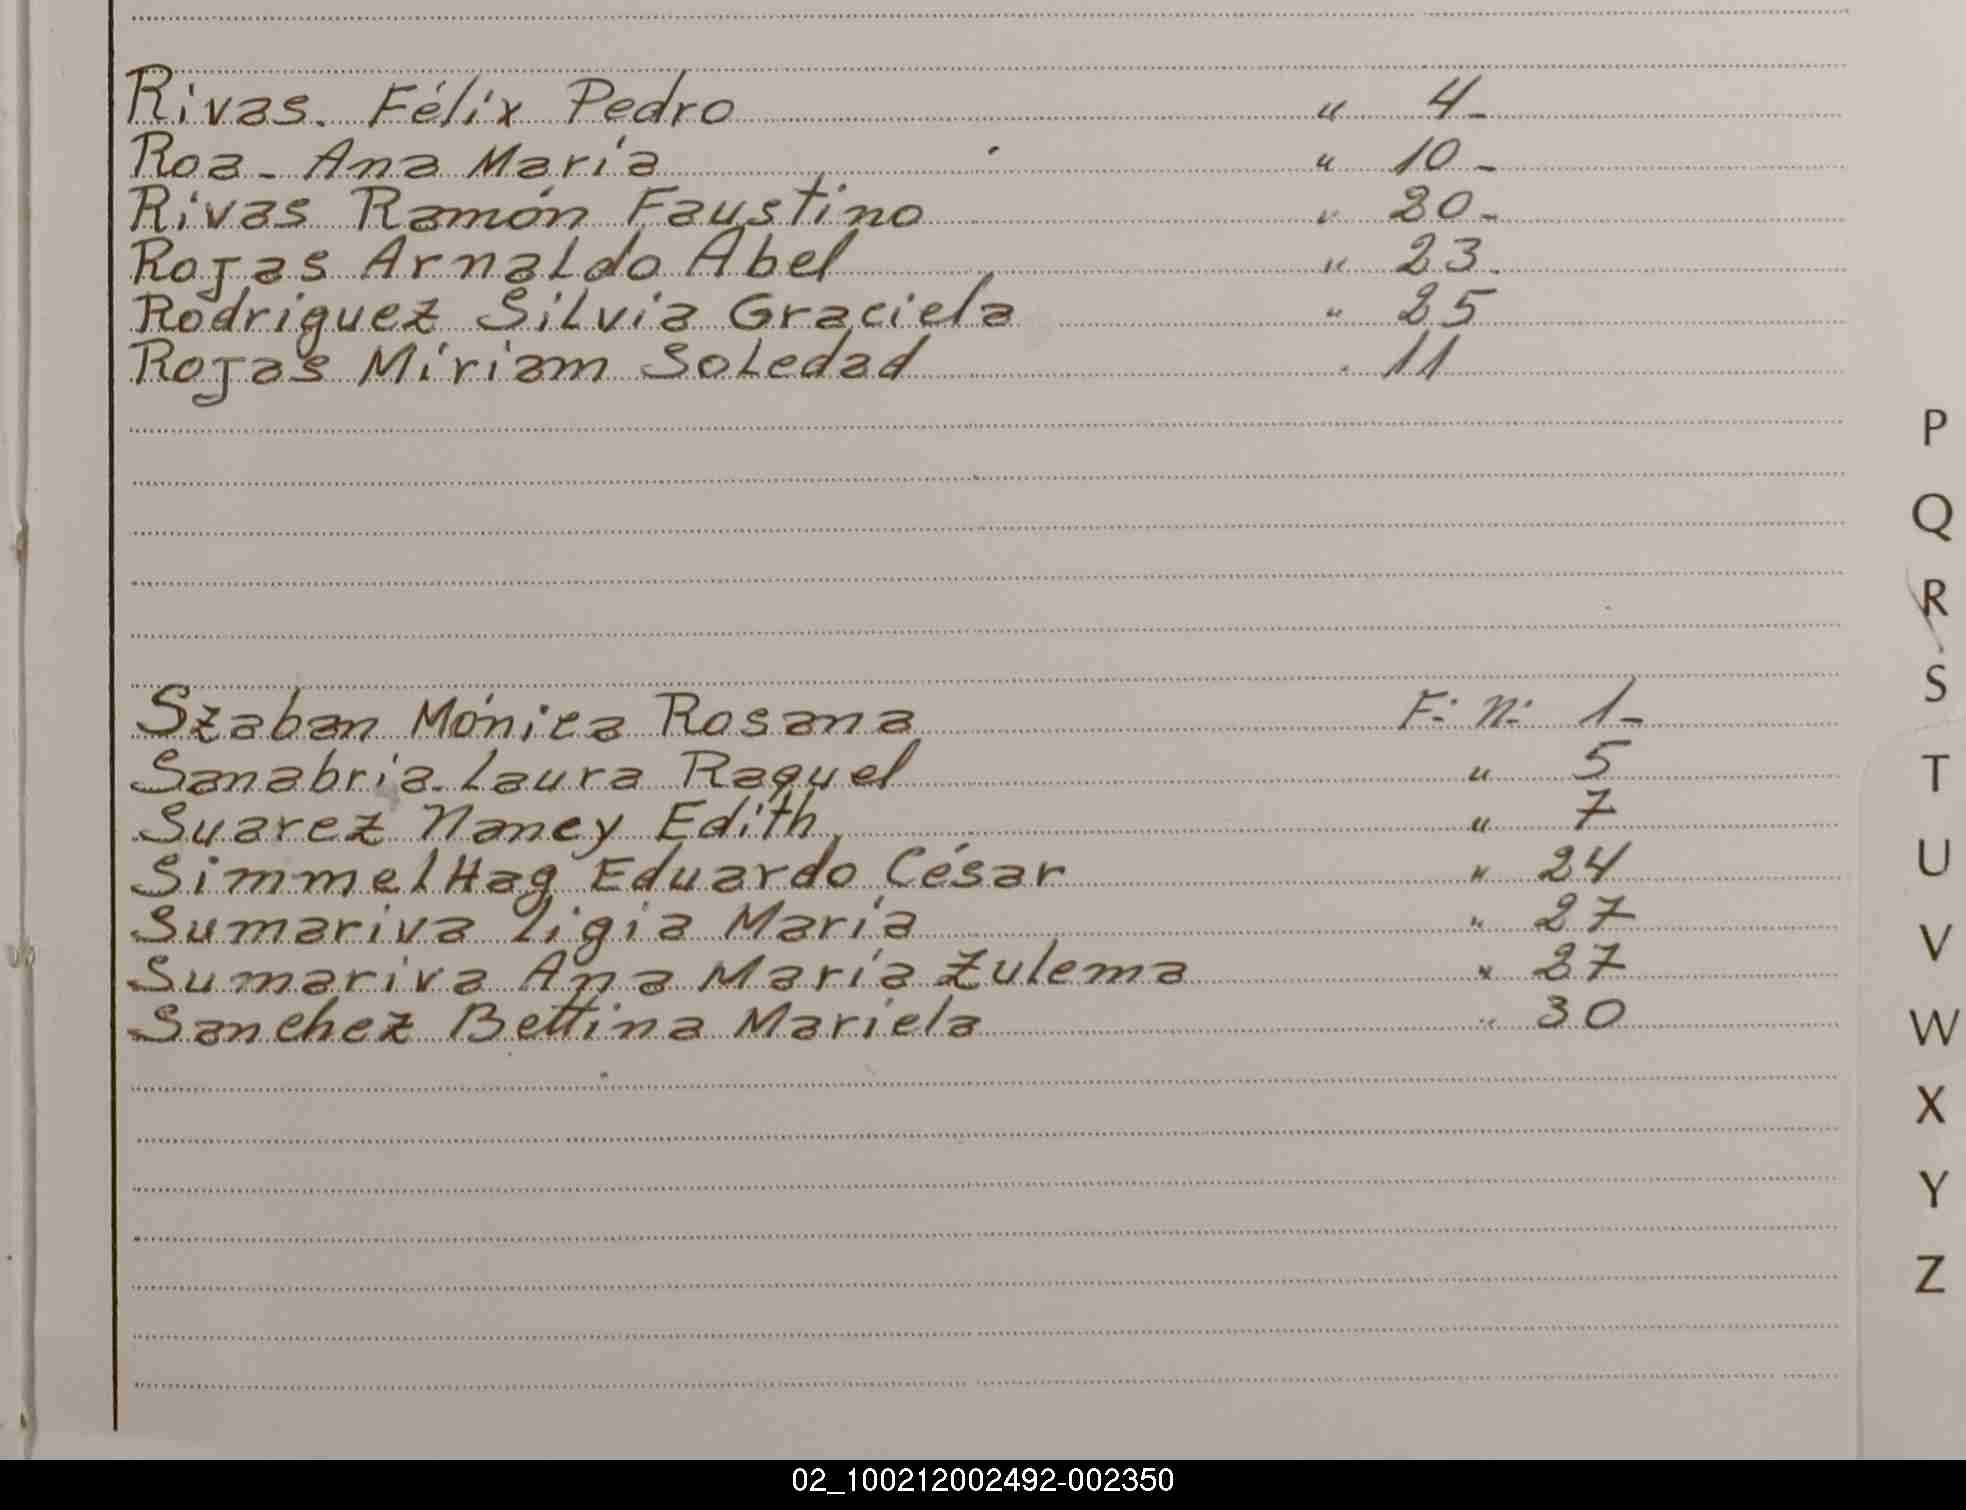 Rivas. Félix Pedro " 4-
Roa - Ana María " 10-
Rivas Ramón Faustino " 20-
Rojas Arnaldo Abel " 23.
Rodriguez Silvia Graciela " 25
Rojas Míriam Soledad " 11
P
Q
R
S
Szaban Mónica Rosana F: N: 1-
Sanabria. Laura Raquel " 5
T
Suarez Nancy Edith " 7
U
Simmelhag Eduardo César " 24
Sumariva Ligia María " 27
V
Sumariva Ana María Zulema " 27
Sanchez Bettina Mariela " 30
W
X
Y
Z
02_100212002492-002350